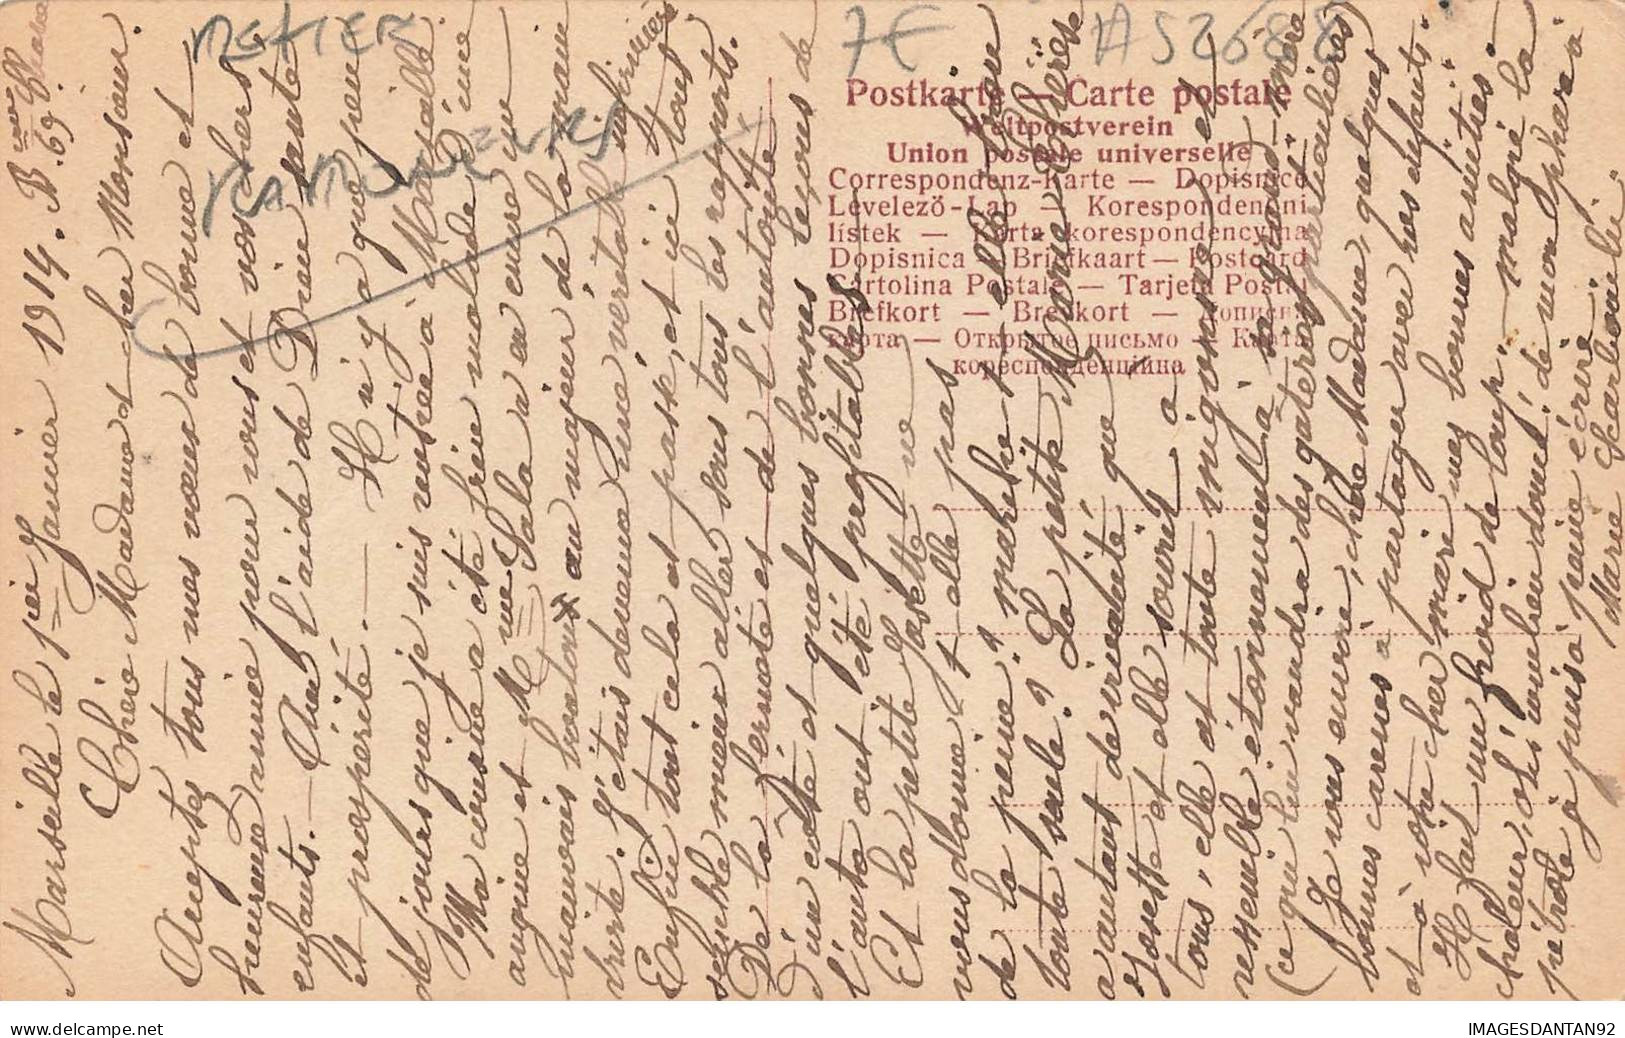 METIER
RAMONEURS
7€
A52688
Postkarte — Carte postale
Weltpostverein
Union postale universelle
Correspondenz-Karte — Dopisnice
Levelező-Lap — Korespondenční
lístek — Karta korespondencyjna
Dopisnica — Briefkaart — Postcard
Cartolina Postale — Tarjeta Postal
Brefkort — Brevkort — Дописна
карта — Открытое письмо — Карта
кореспонденційна
Marseille le 1er Janvier 1914. Bvar
69.
Chère Madame et cher Monsieur.
Acceptez tous mes vœux de bonne et
heureuse année pour vous et vos chers
enfants. — Avec l'aide de Dieu santé
et prospérité. — Il n'y a que peu
de jours que je suis rentrée à Marseille.
Ma cousine a été bien malade d'une
angine et Mme Sala a eu encore un
mauvais bouton au majeur de la main
droite. J'étais devenue une véritable infirmière
Enfin tout cela est passé, et ici tout
semble mieux aller sous tous les rapports.
De la fermeté et de l'autorité
d'un côté et quelques bonnes leçons de
l'autre ont été profitables
Et la petite Josette ne
vous donne-t-elle pas
de la peine? marche-t-elle bien
toute seule? La petite Marie-Thérèse
a autant de vivacité que
Josette et elle sourit à
tous, elle est toute mignonne et
ressemble étonnamment à sa grand-mère
(ce qui lui vaudra des gateries particulières)
Je vous envoie, chère Madame, quelques
bonnes caresses à partager avec vos enfants
et à votre cher mari mes bonnes amitiés.
Il fait un froid de loup, malgré la
chaleur, oh! combien douce! de mon phare à
pétrole je puis à peine écrire
Marie Scarbonchi
IMAGESDANTAN92